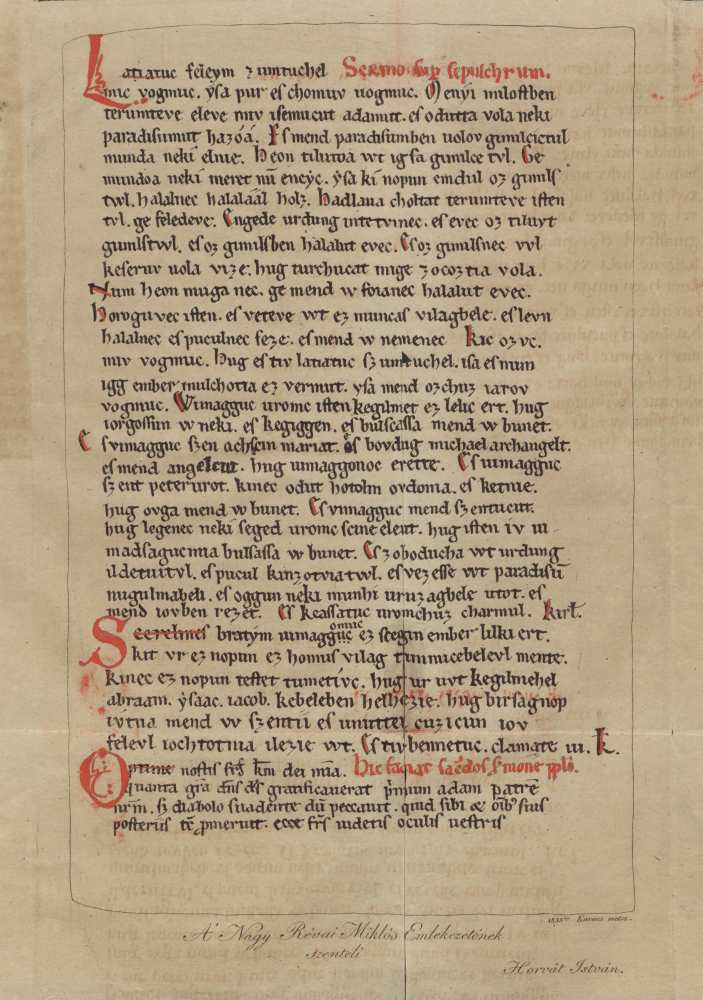 Latiatuc feleym ʒ umtuchel Sermo sup sepulchrum.
mic vogmuc. ysa pur es chomuv uogmuc. Menyi milostben
terumteve eleve miv isemucut adamut. es odutta vola neki
paradisumut hazóá. Es mend paradisumben uolov gimilcictul
munda neki elnie. Heon tilutoa wt igfa gimilce tvl. Ge
mundoa neki meret nū eneyc. ysa ki nopun emdul oz gimils
twl. halalnec halaláál holz. Hadlaua choltat terumteve isten
tvl. ge feledeve. Engede urdung intetvinec. es evec oz tiluvt
gimilstwl. es oz gimilsben halalut evec. Es oz gimilsnec vvl
keseruv uola vize. hug turchucat mige ʒocoztia vola.
Num heon muga nec. ge mend w foianec halalut evec.
Horoguvec isten. es veteve wt ez muncas vilagbele. es levn
halalnec es puculnec feze. es mend w nemenec Kic ozvc.
miv vogmuc. Hug es tiv latiatuc szumtuchel. isa es num
igg ember mulchotia ez vermut. ysa mend ozchuz iarov
vogmuc. Wimagguc uromc isten kegilmet ez lelic ert. hug
iorgossun w neki. es kegiggen. es bulscassa mend w bunet.
Es vimagguc szen achscin mariat. es bovdug michael archangelt.
es mend angelcut. hug uimaggonoc erette. Es uimagguc
szent peter urot. kinec odut hotolm ovdonia. es ketnie.
hug ovga mend w bunet. Es vimagguc mend szentucut.
hug legenec neki seged uromc scine eleut. hug isten iv ui
madsagucmia bulsassa w bunet. Es zoboducha wt urdung
ildetuitvl. es pucul kinzotviatwl. es vezesse wt paradisū
nugulmabeli. es oggun neki munhi uruzagbele utot. es
mend iovben rezet. Es keassatuc uromchuz charmul. Kirł.
Scerelmes bratym uimagg omuc ez scegin ember lilki ert.
Kit vr ez nopun ez homus vilag timnucebelevl mente.
kinec ez nopun testet tumetivc. hug ur uvt kegilmehel
abraam. ysaac. iacob. kebeleben helhezie. hug birsagnop
ivtua mend w szentii es unuttei cuzicun iov
felevl iochtotnia ilezie wt. Es tiv bennetuc. clamate iii. K.
Optime nostis frēs kmi dei mīa. Hic faciat sacdos sermonē pplo.
Quanta grā dnš ds gratificauerat pmum adam patrē
nrm. s; diabolo suadente dū peccauit. quid sibi & oībʼ suis
posteris tē pmeruit. ecce frs uidetis oculis uestris
1835ben Kovács metsz.
A' Nagy Révai Miklós Emlékezetének
szenteli
Horvát István.